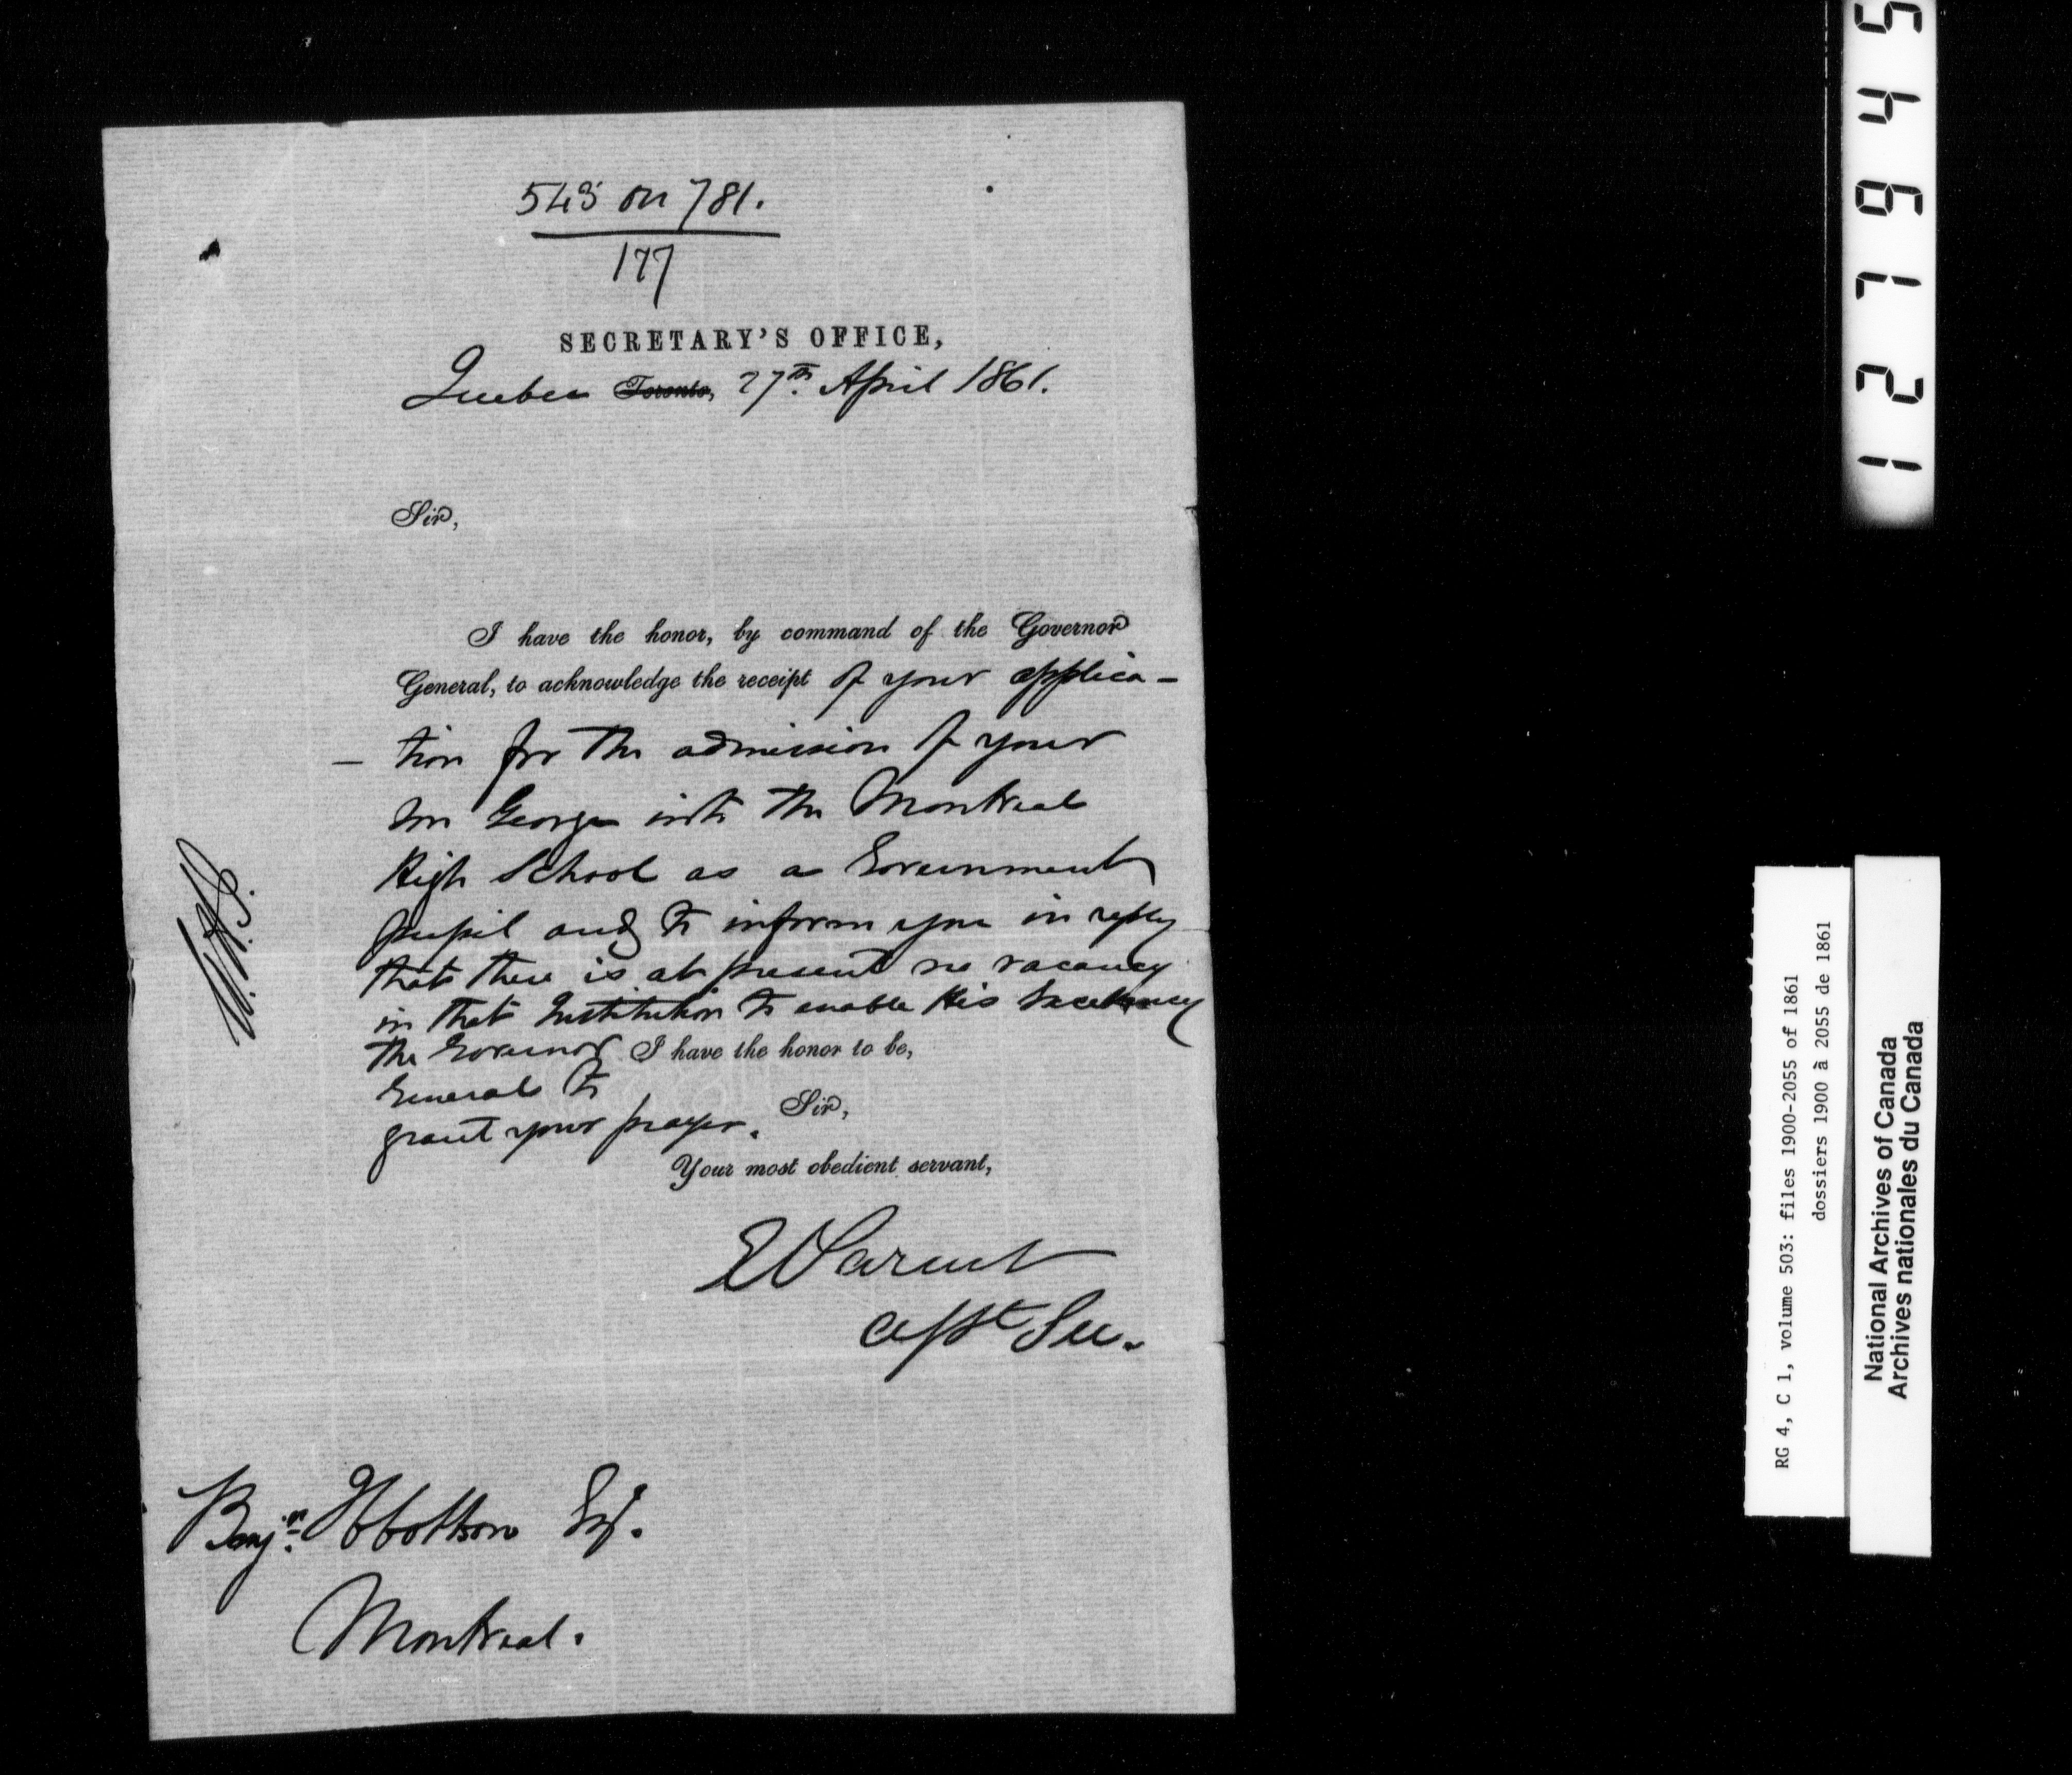 543 on 781.
177
SECRETARY'S OFFICE,
Quebec Toronto, 27th. April 1861.
Sir,
I have the honor, by command of the Governor
General, to acknowledge the receipt of your applica-
- tion for the admission of your
son George into the Montreal
High School as a Government
pupil and to inform you in reply
that there is at present no vacancy
in that Institution to enable His Excellency
the Governor I have the honor to be,
General to
grant your prayer. Sir,
Your most obedient servant,
E Parent
Asst Sec.
Benjn. Ibbotson Esq.
Montreal.
127945
RG 4, C 1, volume 503: files 1900-2055 of 1861
dossiers 1900 à 2055 de 1861
National Archives of Canada
Archives nationales du Canada